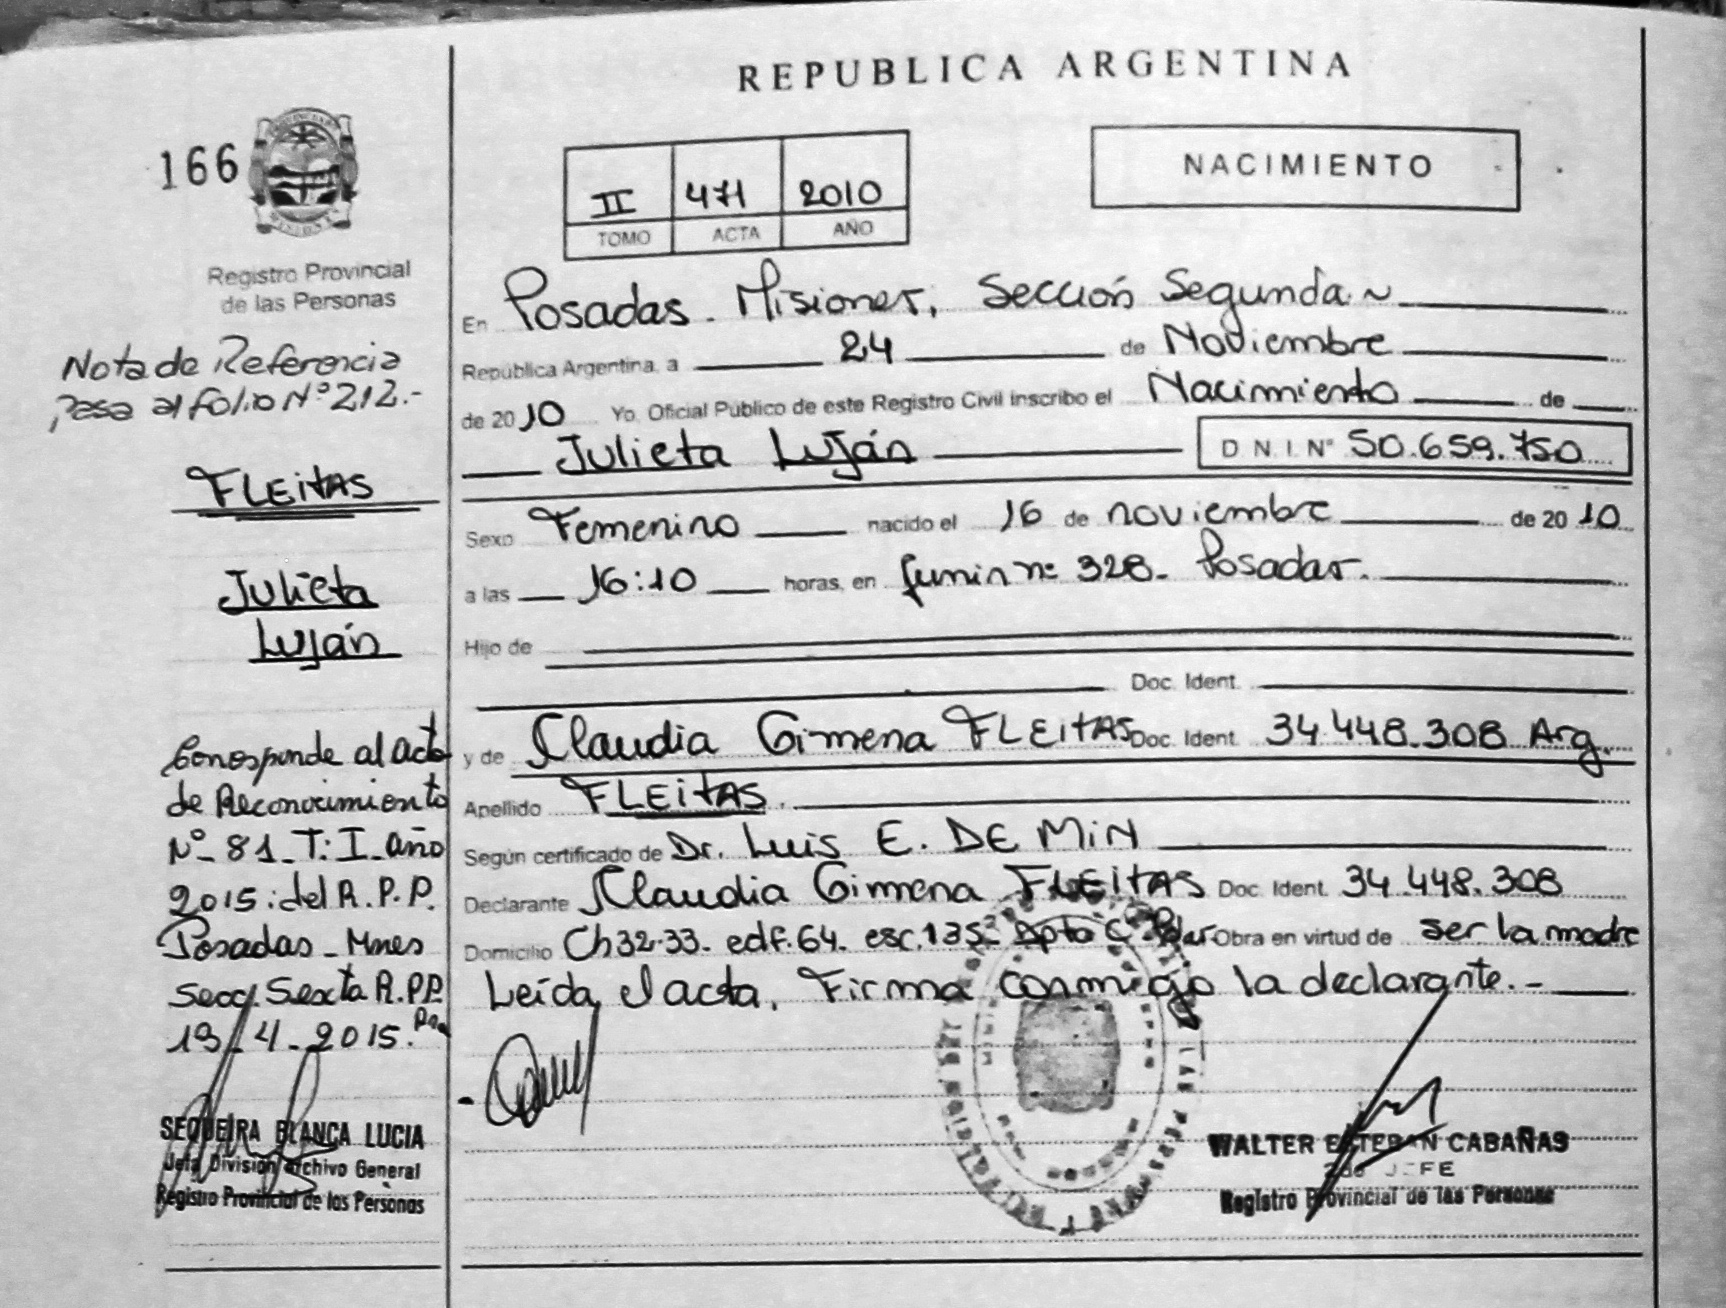 REPUBLICA ARGENTINA
166
Registro Provincial
de las Personas
Nota de Referencia
pasa al folio Nº 212.-
FLEITAS
Julieta
Luján
Corresponde al acta
de Reconocimiento
Nº- 81_T: I_año
2015: del R.P.P.
Posadas_Mnes
Secc. Sexta R.P.P.
13/4_2015.
SEQUEIRA BLANCA LUCIA
Jefa División Archivo General
Registro Provincial de las Personas
II 471 2010
TOMO ACTA AÑO
NACIMIENTO
En Posadas. Misiones, Sección Segunda ~
República Argentina, a 24 de Noviembre
de 2010 Yo, Oficial Público de este Registro Civil inscribo el Nacimiento de
Julieta Luján D.N.I. Nº 50.659.750
Sexo Femenino nacido el 16 de noviembre de 2010
a las 16:10 horas, en Junin nº 328. Posadas.
Hijo de
Doc. Ident.
y de Claudia Gimena FLEITAS Doc. Ident. 34.448.308 Arg.
Apellido FLEITAS.
Según certificado de Dr. Luis E. DE MIN
Declarante Claudia Gimena FLEITAS Doc. Ident. 34.448.308
Domicilio Ch 32-33. edf. 64. esc. 135 Dpto C Pdas Obra en virtud de ser la madre
Leída el acta, Firma conmigo la declarante.-
WALTER ESTEBAN CABAÑAS
JEFE
Registro Provincial de las Personas